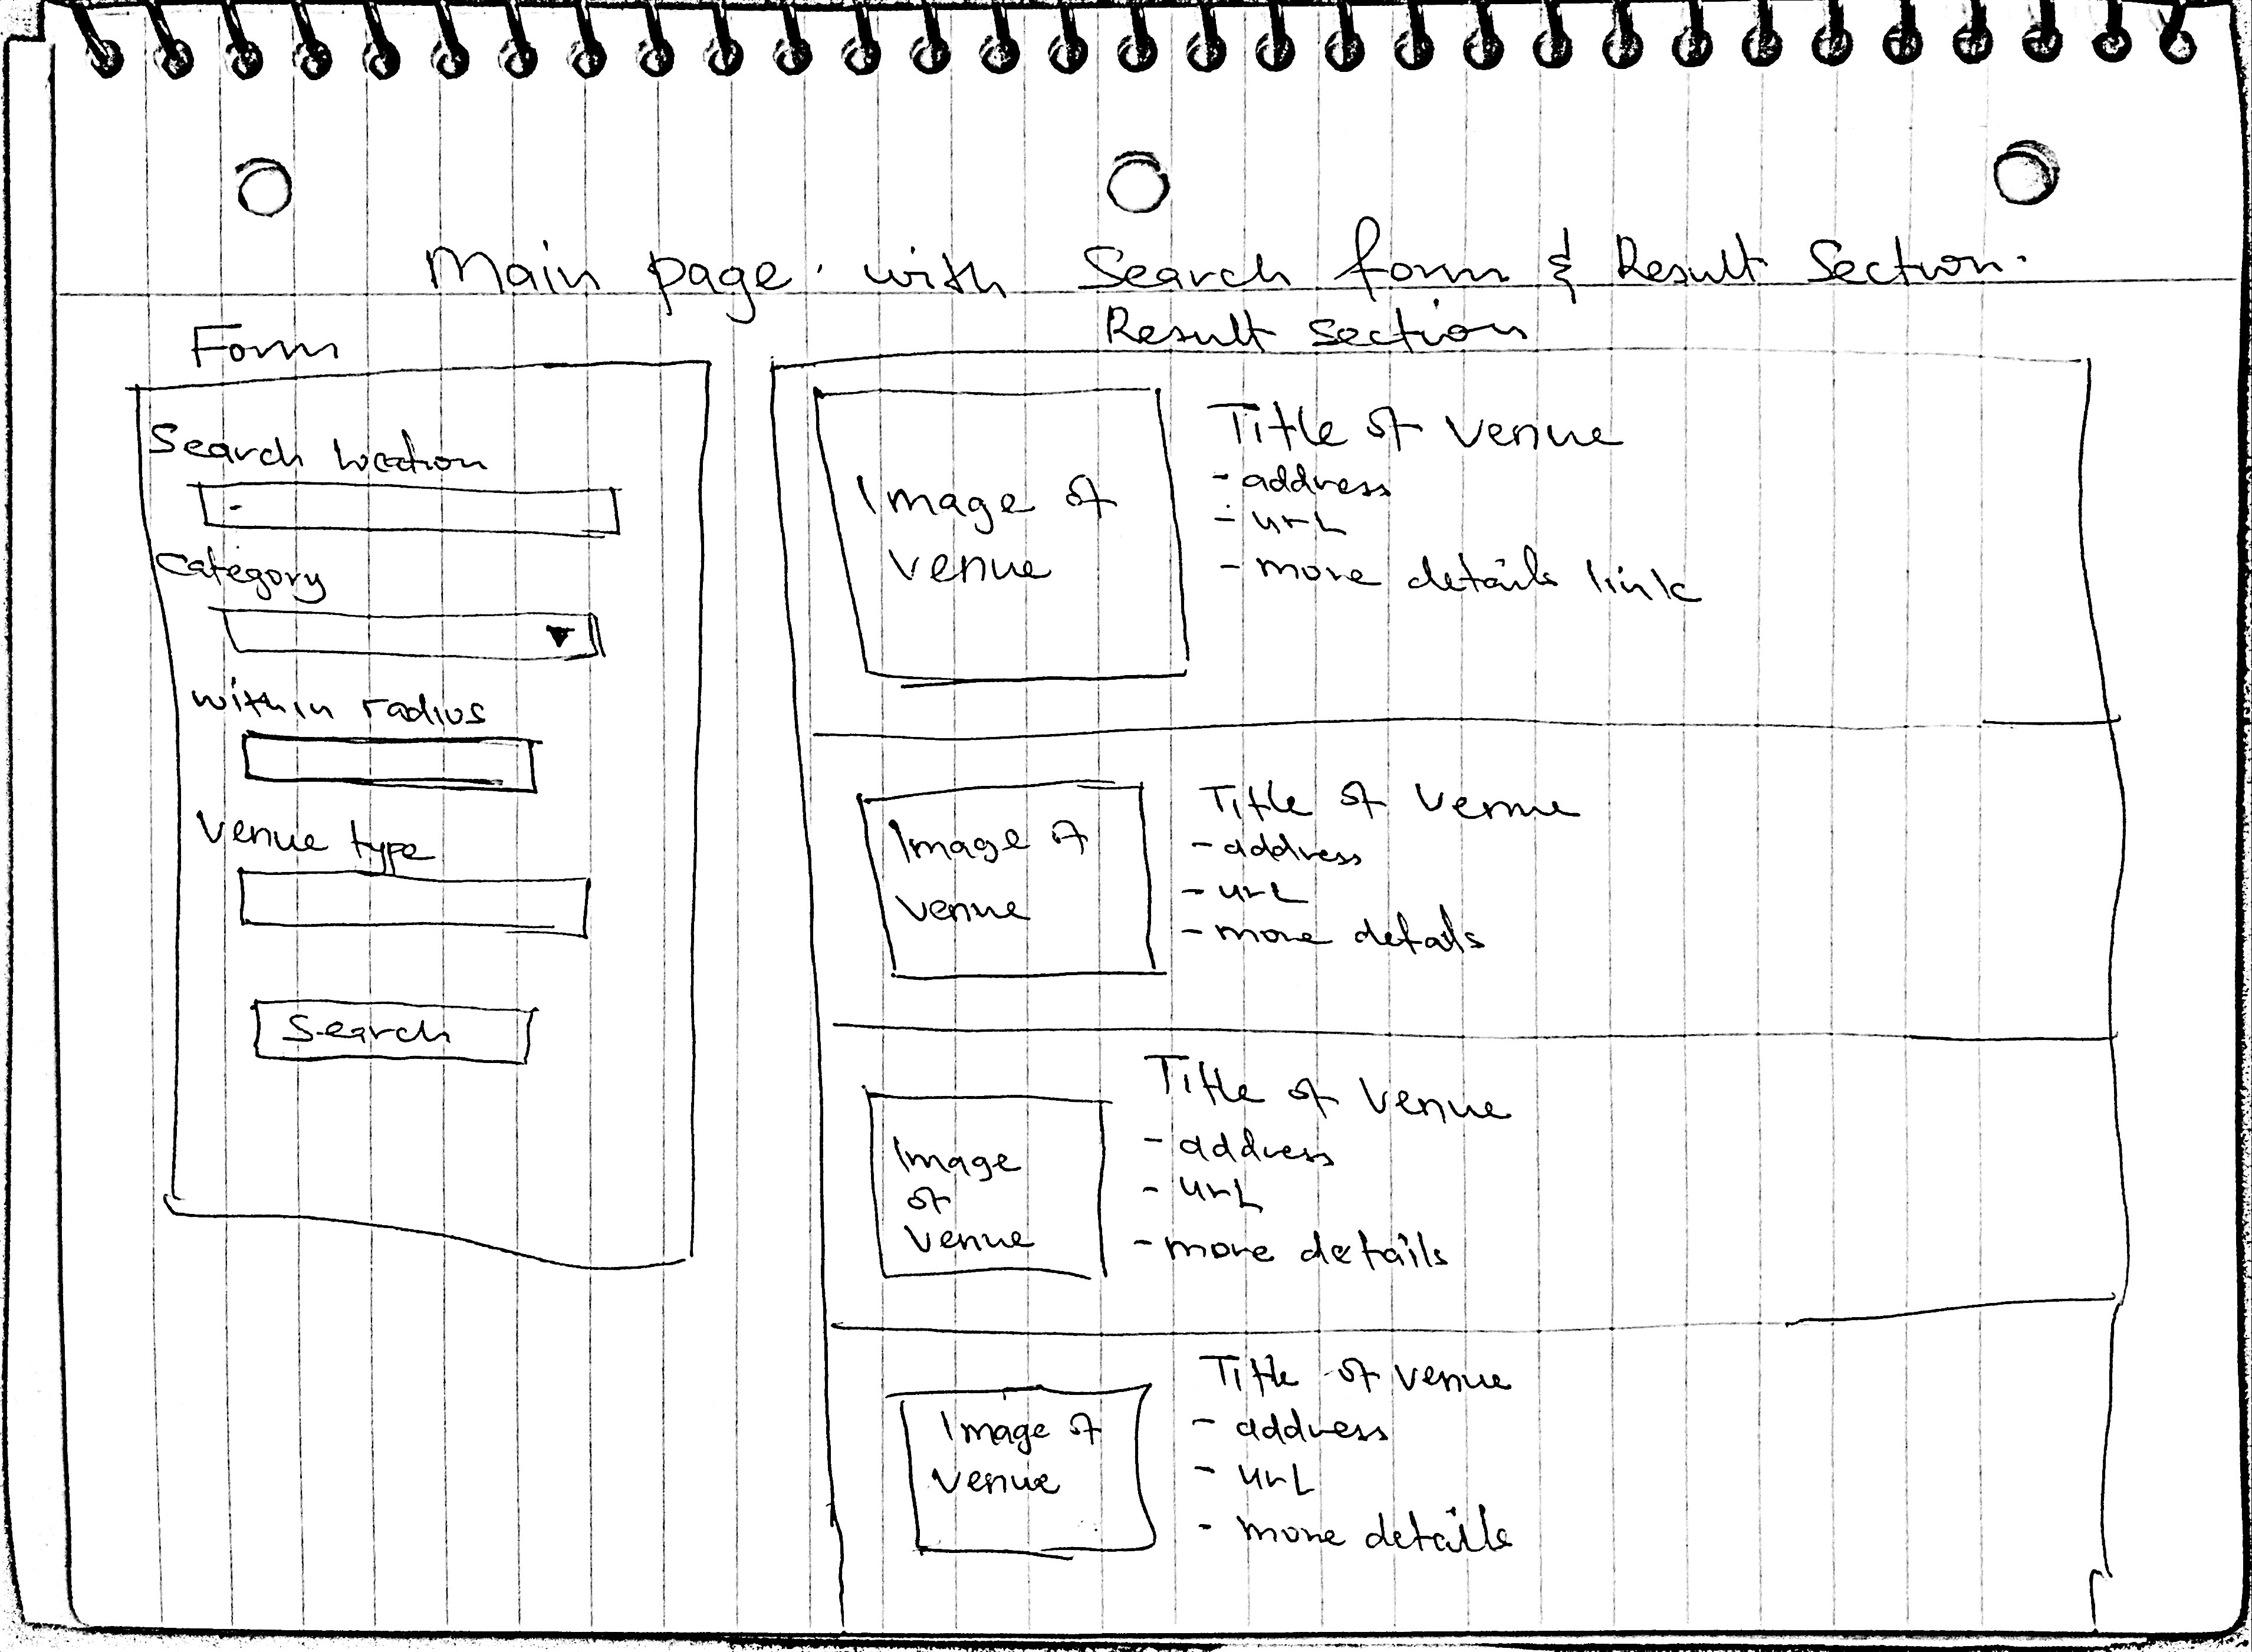 Main page with Search form & Result Section.
Form
Search location
Category
within radius
Venue type
Search
Result section
Image of
venue
Title of venue
- address
- urL
- more details link
Image of
venue
Title of venue
- address
- urL
- more details
Image
of
venue
Title of venue
- address
- urL
- more details
Image of
venue
Title of venue
- address
- urL
- more details